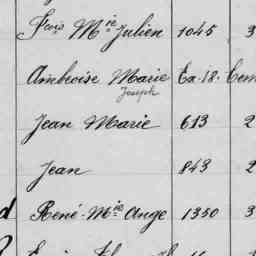 Fçois Mie Julien 1045 3
Ambroise Marie Ex. 18. Cem
Joseph
Jean Marie 613 2
Jean 843 2
d René-Mie Ange 1350 3